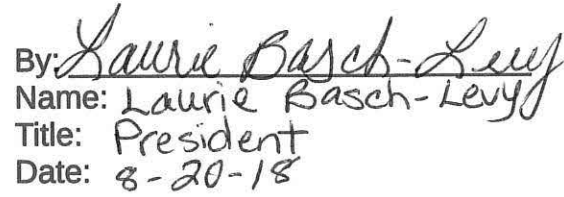 By: Laurie Basch-Levy
Name: Laurie Basch-Levy
Title: President
Date: 8-20-18